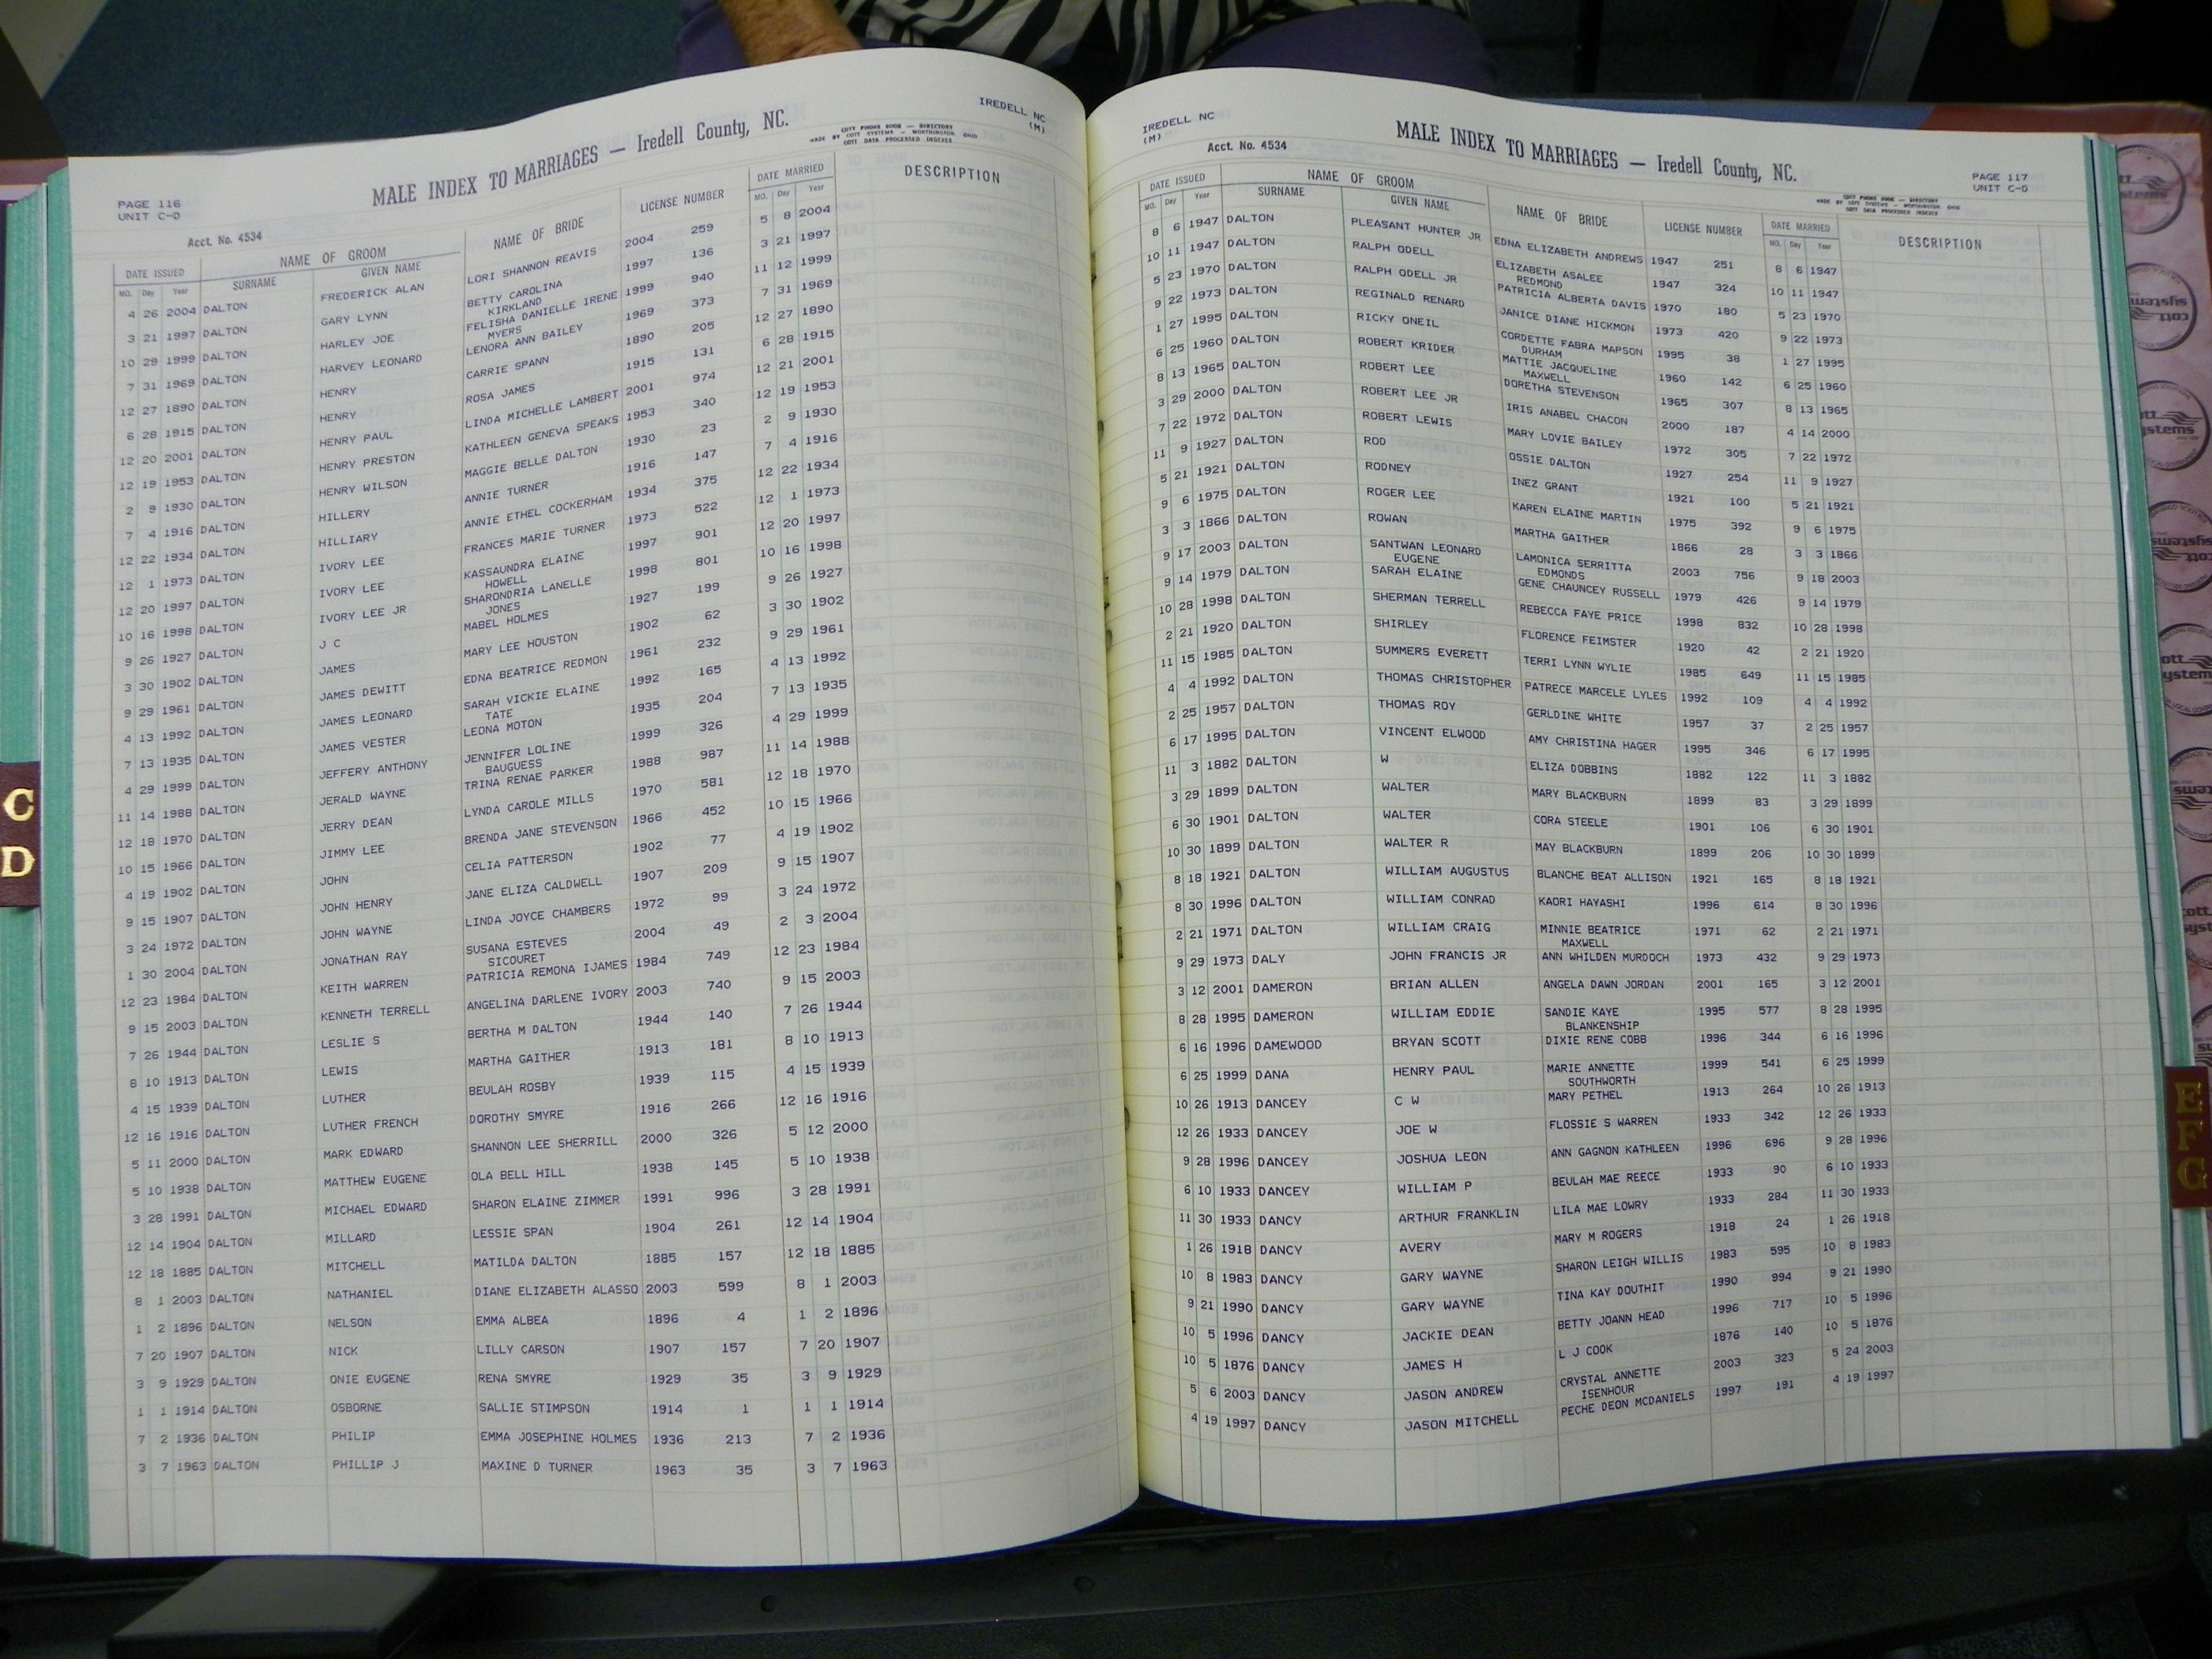 IREDELL NC
(M)
MALE INDEX TO MARRIAGES — Iredell County, NC.
COTT PHONE BOOK — DIRECTORY
MADE BY COTT SYSTEMS — WORTHINGTON, OHIO
COTT DATA PROCESSED INDEXES
PAGE 116
UNIT C-D
Acct. No. 4534
DATE ISSUED NAME OF GROOM NAME OF BRIDE LICENSE NUMBER DATE MARRIED DESCRIPTION
MO. Day Year SURNAME GIVEN NAME MO. Day Year
4 26 2004 DALTON FREDERICK ALAN LORI SHANNON REAVIS 2004 259 5 8 2004
3 21 1997 DALTON GARY LYNN BETTY CAROLINA 1997 136 3 21 1997
KIRKLAND
10 29 1999 DALTON HARLEY JOE FELISHA DANIELLE IRENE 1999 940 11 12 1999
MYERS
7 31 1969 DALTON HARVEY LEONARD LENORA ANN BAILEY 1969 373 7 31 1969
12 27 1890 DALTON HENRY CARRIE SPANN 1890 205 12 27 1890
6 28 1915 DALTON HENRY ROSA JAMES 1915 131 6 28 1915
12 20 2001 DALTON HENRY PAUL LINDA MICHELLE LAMBERT 2001 974 12 21 2001
12 19 1953 DALTON HENRY PRESTON KATHLEEN GENEVA SPEAKS 1953 340 12 19 1953
2 9 1930 DALTON HENRY WILSON MAGGIE BELLE DALTON 1930 23 2 9 1930
7 4 1916 DALTON HILLERY ANNIE TURNER 1916 147 7 4 1916
12 22 1934 DALTON HILLIARY ANNIE ETHEL COCKERHAM 1934 375 12 22 1934
12 1 1973 DALTON IVORY LEE FRANCES MARIE TURNER 1973 522 12 1 1973
12 20 1997 DALTON IVORY LEE KASSAUNDRA ELAINE 1997 901 12 20 1997
HOWELL
10 16 1998 DALTON IVORY LEE JR SHARONDRIA LANELLE 1998 801 10 16 1998
JONES
9 26 1927 DALTON J C MABEL HOLMES 1927 199 9 26 1927
3 30 1902 DALTON JAMES MARY LEE HOUSTON 1902 62 3 30 1902
9 29 1961 DALTON JAMES DEWITT EDNA BEATRICE REDMON 1961 232 9 29 1961
4 13 1992 DALTON JAMES LEONARD SARAH VICKIE ELAINE 1992 165 4 13 1992
TATE
7 13 1935 DALTON JAMES VESTER LEONA MOTON 1935 204 7 13 1935
4 29 1999 DALTON JEFFERY ANTHONY JENNIFER LOLINE 1999 326 4 29 1999
BAUGUESS
11 14 1988 DALTON JERALD WAYNE TRINA RENAE PARKER 1988 987 11 14 1988
12 18 1970 DALTON JERRY DEAN LYNDA CAROLE MILLS 1970 581 12 18 1970
10 15 1966 DALTON JIMMY LEE BRENDA JANE STEVENSON 1966 452 10 15 1966
4 19 1902 DALTON JOHN CELIA PATTERSON 1902 77 4 19 1902
9 15 1907 DALTON JOHN HENRY JANE ELIZA CALDWELL 1907 209 9 15 1907
3 24 1972 DALTON JOHN WAYNE LINDA JOYCE CHAMBERS 1972 99 3 24 1972
1 30 2004 DALTON JONATHAN RAY SUSANA ESTEVES 2004 49 2 3 2004
SICOURET
12 23 1984 DALTON KEITH WARREN PATRICIA REMONA IJAMES 1984 749 12 23 1984
9 15 2003 DALTON KENNETH TERRELL ANGELINA DARLENE IVORY 2003 740 9 15 2003
7 26 1944 DALTON LESLIE S BERTHA M DALTON 1944 140 7 26 1944
8 10 1913 DALTON LEWIS MARTHA GAITHER 1913 181 8 10 1913
4 15 1939 DALTON LUTHER BEULAH ROSBY 1939 115 4 15 1939
12 16 1916 DALTON LUTHER FRENCH DOROTHY SMYRE 1916 266 12 16 1916
5 11 2000 DALTON MARK EDWARD SHANNON LEE SHERRILL 2000 326 5 12 2000
5 10 1938 DALTON MATTHEW EUGENE OLA BELL HILL 1938 145 5 10 1938
3 28 1991 DALTON MICHAEL EDWARD SHARON ELAINE ZIMMER 1991 996 3 28 1991
12 14 1904 DALTON MILLARD LESSIE SPAN 1904 261 12 14 1904
12 18 1885 DALTON MITCHELL MATILDA DALTON 1885 157 12 18 1885
8 1 2003 DALTON NATHANIEL DIANE ELIZABETH ALASSO 2003 599 8 1 2003
1 2 1896 DALTON NELSON EMMA ALBEA 1896 4 1 2 1896
7 20 1907 DALTON NICK LILLY CARSON 1907 157 7 20 1907
3 9 1929 DALTON ONIE EUGENE RENA SMYRE 1929 35 3 9 1929
1 1 1914 DALTON OSBORNE SALLIE STIMPSON 1914 1 1 1 1914
7 2 1936 DALTON PHILIP EMMA JOSEPHINE HOLMES 1936 213 7 2 1936
3 7 1963 DALTON PHILLIP J MAXINE D TURNER 1963 35 3 7 1963
IREDELL NC
(M)
Acct. No. 4534
MALE INDEX TO MARRIAGES — Iredell County, NC.
COTT PHONE BOOK — DIRECTORY
MADE BY COTT SYSTEMS — WORTHINGTON, OHIO
COTT DATA PROCESSED INDEXES
PAGE 117
UNIT C-D
DATE ISSUED NAME OF GROOM NAME OF BRIDE LICENSE NUMBER DATE MARRIED DESCRIPTION
MO. Day Year SURNAME GIVEN NAME MO. Day Year
8 6 1947 DALTON PLEASANT HUNTER JR EDNA ELIZABETH ANDREWS 1947 251 8 6 1947
10 11 1947 DALTON RALPH ODELL ELIZABETH ASALEE 1947 324 10 11 1947
REDMOND
5 23 1970 DALTON RALPH ODELL JR PATRICIA ALBERTA DAVIS 1970 180 5 23 1970
9 22 1973 DALTON REGINALD RENARD JANICE DIANE HICKMON 1973 420 9 22 1973
1 27 1995 DALTON RICKY ONEIL CORDETTE FABRA MAPSON 1995 38 1 27 1995
DURHAM
6 25 1960 DALTON ROBERT KRIDER MATTIE JACQUELINE 1960 142 6 25 1960
MAXWELL
8 13 1965 DALTON ROBERT LEE DORETHA STEVENSON 1965 307 8 13 1965
3 29 2000 DALTON ROBERT LEE JR IRIS ANABEL CHACON 2000 187 4 14 2000
7 22 1972 DALTON ROBERT LEWIS MARY LOVIE BAILEY 1972 305 7 22 1972
11 9 1927 DALTON ROD OSSIE DALTON 1927 254 11 9 1927
5 21 1921 DALTON RODNEY INEZ GRANT 1921 100 5 21 1921
9 6 1975 DALTON ROGER LEE KAREN ELAINE MARTIN 1975 392 9 6 1975
3 3 1866 DALTON ROWAN MARTHA GAITHER 1866 28 3 3 1866
9 17 2003 DALTON SANTWAN LEONARD LAMONICA SERRITTA 2003 756 9 18 2003
EUGENE EDMONDS
9 14 1979 DALTON SARAH ELAINE GENE CHAUNCEY RUSSELL 1979 426 9 14 1979
10 28 1998 DALTON SHERMAN TERRELL REBECCA FAYE PRICE 1998 832 10 28 1998
2 21 1920 DALTON SHIRLEY FLORENCE FEIMSTER 1920 42 2 21 1920
11 15 1985 DALTON SUMMERS EVERETT TERRI LYNN WYLIE 1985 649 11 15 1985
4 4 1992 DALTON THOMAS CHRISTOPHER PATRECE MARCELE LYLES 1992 109 4 4 1992
2 25 1957 DALTON THOMAS ROY GERLDINE WHITE 1957 37 2 25 1957
6 17 1995 DALTON VINCENT ELWOOD AMY CHRISTINA HAGER 1995 346 6 17 1995
11 3 1882 DALTON W ELIZA DOBBINS 1882 122 11 3 1882
3 29 1899 DALTON WALTER MARY BLACKBURN 1899 83 3 29 1899
6 30 1901 DALTON WALTER CORA STEELE 1901 106 6 30 1901
10 30 1899 DALTON WALTER R MAY BLACKBURN 1899 206 10 30 1899
8 18 1921 DALTON WILLIAM AUGUSTUS BLANCHE BEAT ALLISON 1921 165 8 18 1921
8 30 1996 DALTON WILLIAM CONRAD KAORI HAYASHI 1996 614 8 30 1996
2 21 1971 DALTON WILLIAM CRAIG MINNIE BEATRICE 1971 62 2 21 1971
MAXWELL
9 29 1973 DALY JOHN FRANCIS JR ANN WHILDEN MURDOCH 1973 432 9 29 1973
3 12 2001 DAMERON BRIAN ALLEN ANGELA DAWN JORDAN 2001 165 3 12 2001
8 28 1995 DAMERON WILLIAM EDDIE SANDIE KAYE 1995 577 8 28 1995
BLANKENSHIP
6 16 1996 DAMEWOOD BRYAN SCOTT DIXIE RENE COBB 1996 344 6 16 1996
6 25 1999 DANA HENRY PAUL MARIE ANNETTE 1999 541 6 25 1999
SOUTHWORTH
10 26 1913 DANCEY C W MARY PETHEL 1913 264 10 26 1913
12 26 1933 DANCEY JOE W FLOSSIE S WARREN 1933 342 12 26 1933
9 28 1996 DANCEY JOSHUA LEON ANN GAGNON KATHLEEN 1996 696 9 28 1996
6 10 1933 DANCEY WILLIAM P BEULAH MAE REECE 1933 90 6 10 1933
11 30 1933 DANCY ARTHUR FRANKLIN LILA MAE LOWRY 1933 284 11 30 1933
1 26 1918 DANCY AVERY MARY M ROGERS 1918 24 1 26 1918
10 8 1983 DANCY GARY WAYNE SHARON LEIGH WILLIS 1983 595 10 8 1983
9 21 1990 DANCY GARY WAYNE TINA KAY DOUTHIT 1990 994 9 21 1990
10 5 1996 DANCY JACKIE DEAN BETTY JOANN HEAD 1996 717 10 5 1996
10 5 1876 DANCY JAMES H L J COOK 1876 140 10 5 1876
5 6 2003 DANCY JASON ANDREW CRYSTAL ANNETTE 2003 323 5 24 2003
ISENHOUR
4 19 1997 DANCY JASON MITCHELL PECHE DEON MCDANIELS 1997 191 4 19 1997
C
D
E
F
G
cott
systems